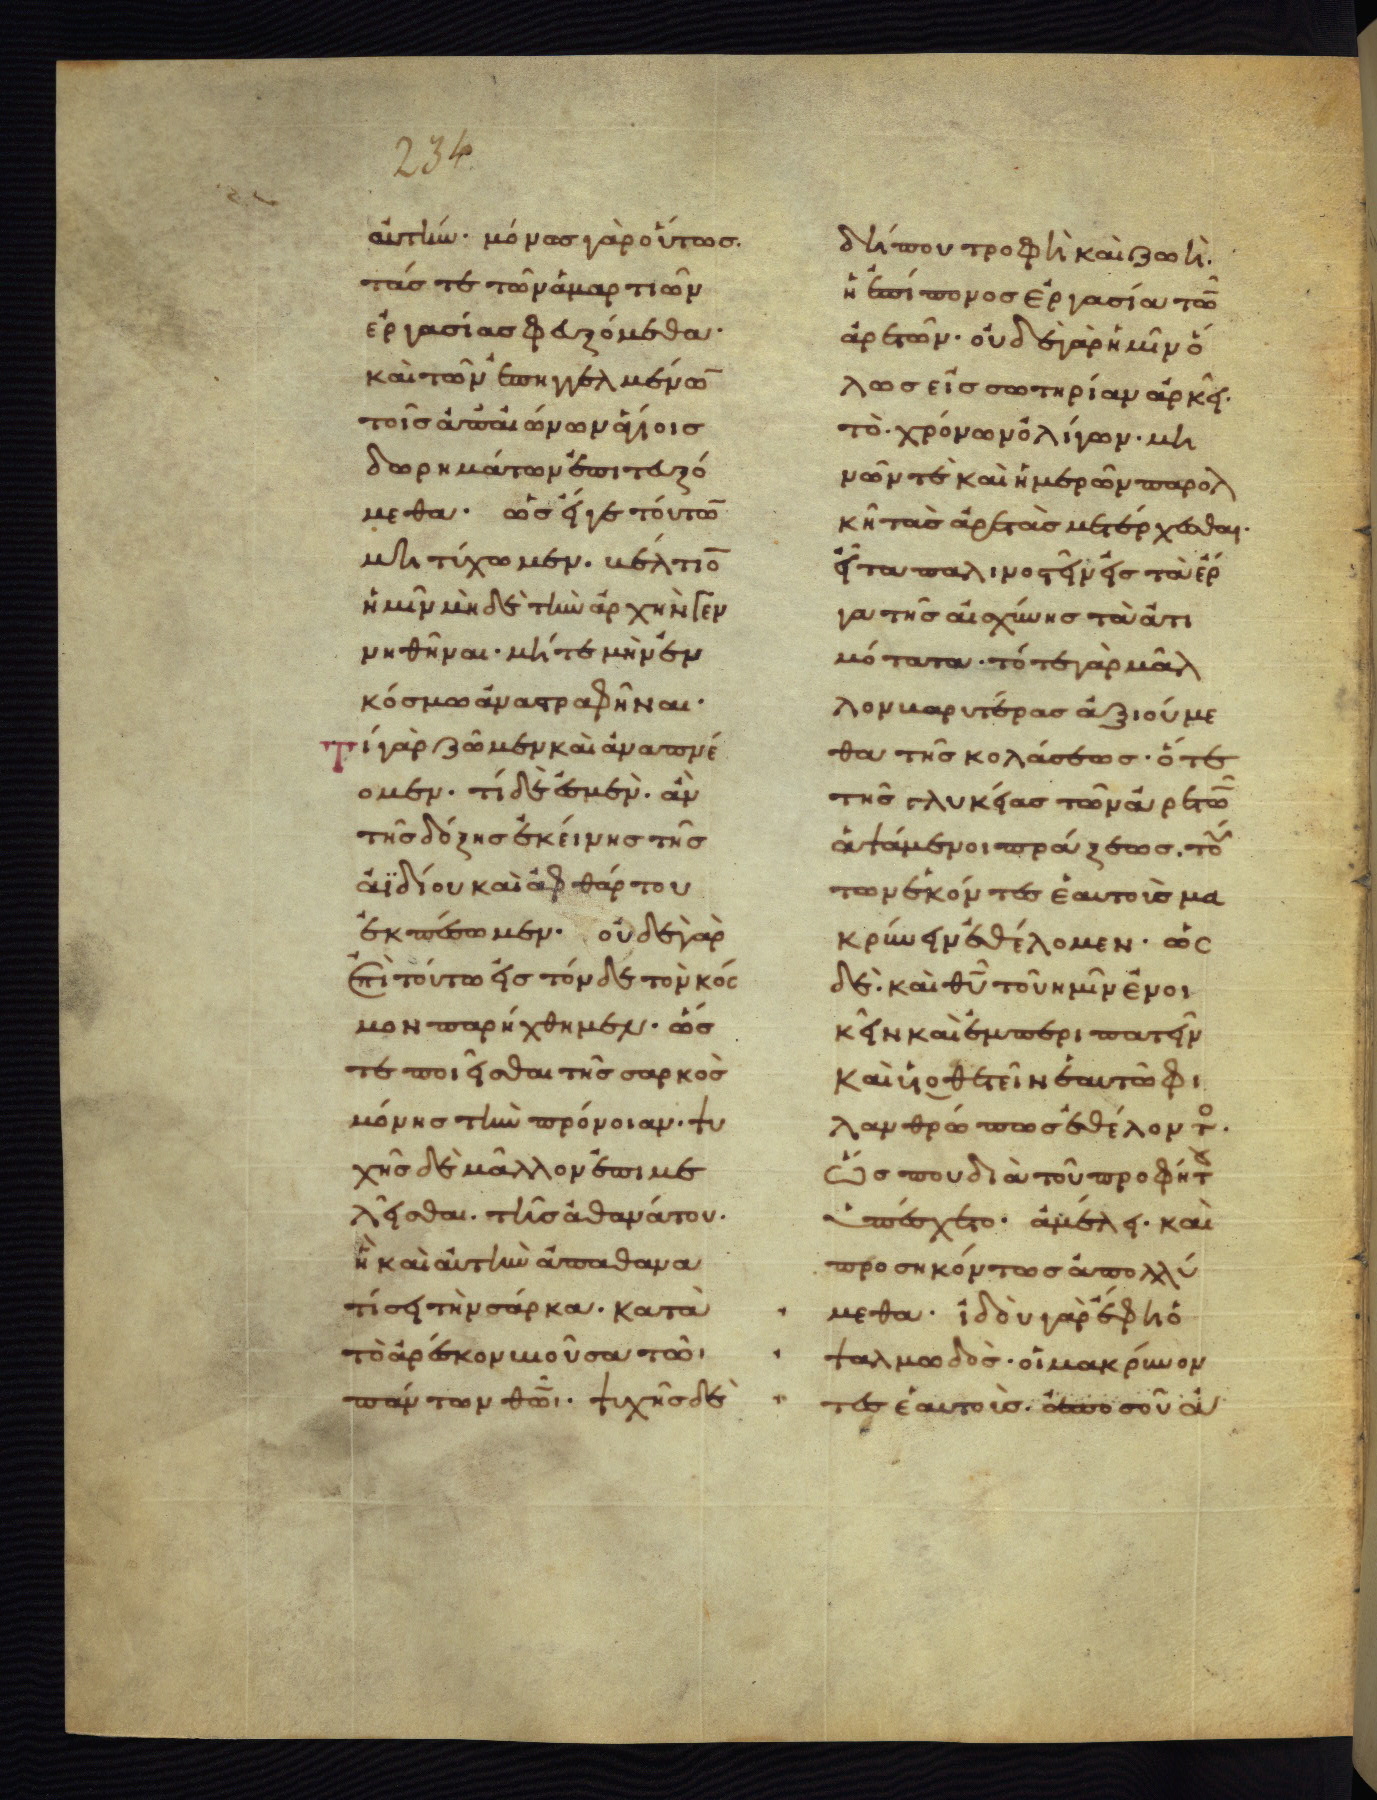 234
αὐτήν· μόνως γὰρ οὕτως.
τάς τε τῶν ἁμαρτιῶν
ἐργασίας φευξόμεθα·
καὶ τῶν ἐπηγγελμένω̅
τοῖς ἀπαιώνων ἁγίοις
δωρημάτων ἐπιτευξό
μεθα· ὡς εἴγε τούτω̅
μὴ τύχωμεν. βέλτιο̅
ἡμῖν μὴδὲ τὴν ἀρχὴν γεν
νηθῆναι· μήτε μὴν ἐν
κόσμω ἀνατραφῆναι·
Τί γὰρ ζῶμεν καὶ ἀναπνέ
ομεν. τί δὲ ἐσμὲν. ἂν
τῆς δόξης ἐκείνης τῆς
ἀϊδίου καὶ ἀφθάρτου
ἐκπέσωμεν. οὐδὲ γὰρ
ἐπὶ τούτω εἰς τόνδε τὸν κόσ
μον παρήχθημεν. ὥς
τε ποιεῖσθαι τῆς σαρκὸς
μόνης τὴν πρόνοιαν. ψυ
χῆς δὲ μᾶλλον ἐπιμε
λεῖσθαι. τῆς ἀθανάτου.
ἣ καὶ αὐτὴν ἀπαθανα
τίσει τὴν σάρκα. κατὰ
τὸ ἀρέσκον βιοῦσα τῶι
πάντων θω̅ι. ψυχῆς δὲ
δήπου τροφὴ καὶ ζωὴ.
ἡ ἐπίπονος ἐργασία τω̅
ἀρετῶν. οὐδὲ γὰρ ἡμῖν ὅ
λως εἰς σωτηρίαν ἀρκεῖ.
τὸ. χρόνων ὀλίγων. μη
νῶν τὲ καὶ ἡμερῶν παρολ
κῆ τὰς ἀρετὰς μετέρχεσθαι.
εἶτα παλινοστεῖν εἰς τὰ ἔρ
γα τῆς αἰσχύνης τὰ ἀτι
μότατα. τότε γὰρ μᾶλ
λον βαρυτέρας ἀξιούμε
θα τῆς κολάσεως. ὅτε
τῆς γλυκείας τῶν ἀρετω̅
ἁψάμενοι πράξεως. τού
των ἑκόντες ἑαυτοὺς μα
κρύνειν ἐθέλομεν. ὡς
δὲ. καὶ θυ̅ τοῦ ἡμῖν ἐνοι
κεῖν καὶ ἐμπεριπατεῖν
καὶ υἱοθετεῖν ἑαυτῶ φι
λανθρώπως ἐθέλοντο.
Ὥς που διὰ τοῦ προφήτ
ὑπέσχετο. ἀμέλει. καὶ
προσηκόντως ἀπολλύ
μεθα. ἰδοὺ γὰρ ἔφη ὁ
ψαλμωδὸς. οἱ μακρύνον
τες ἑαυτοὺς. ἀπο σοῦ ἀ